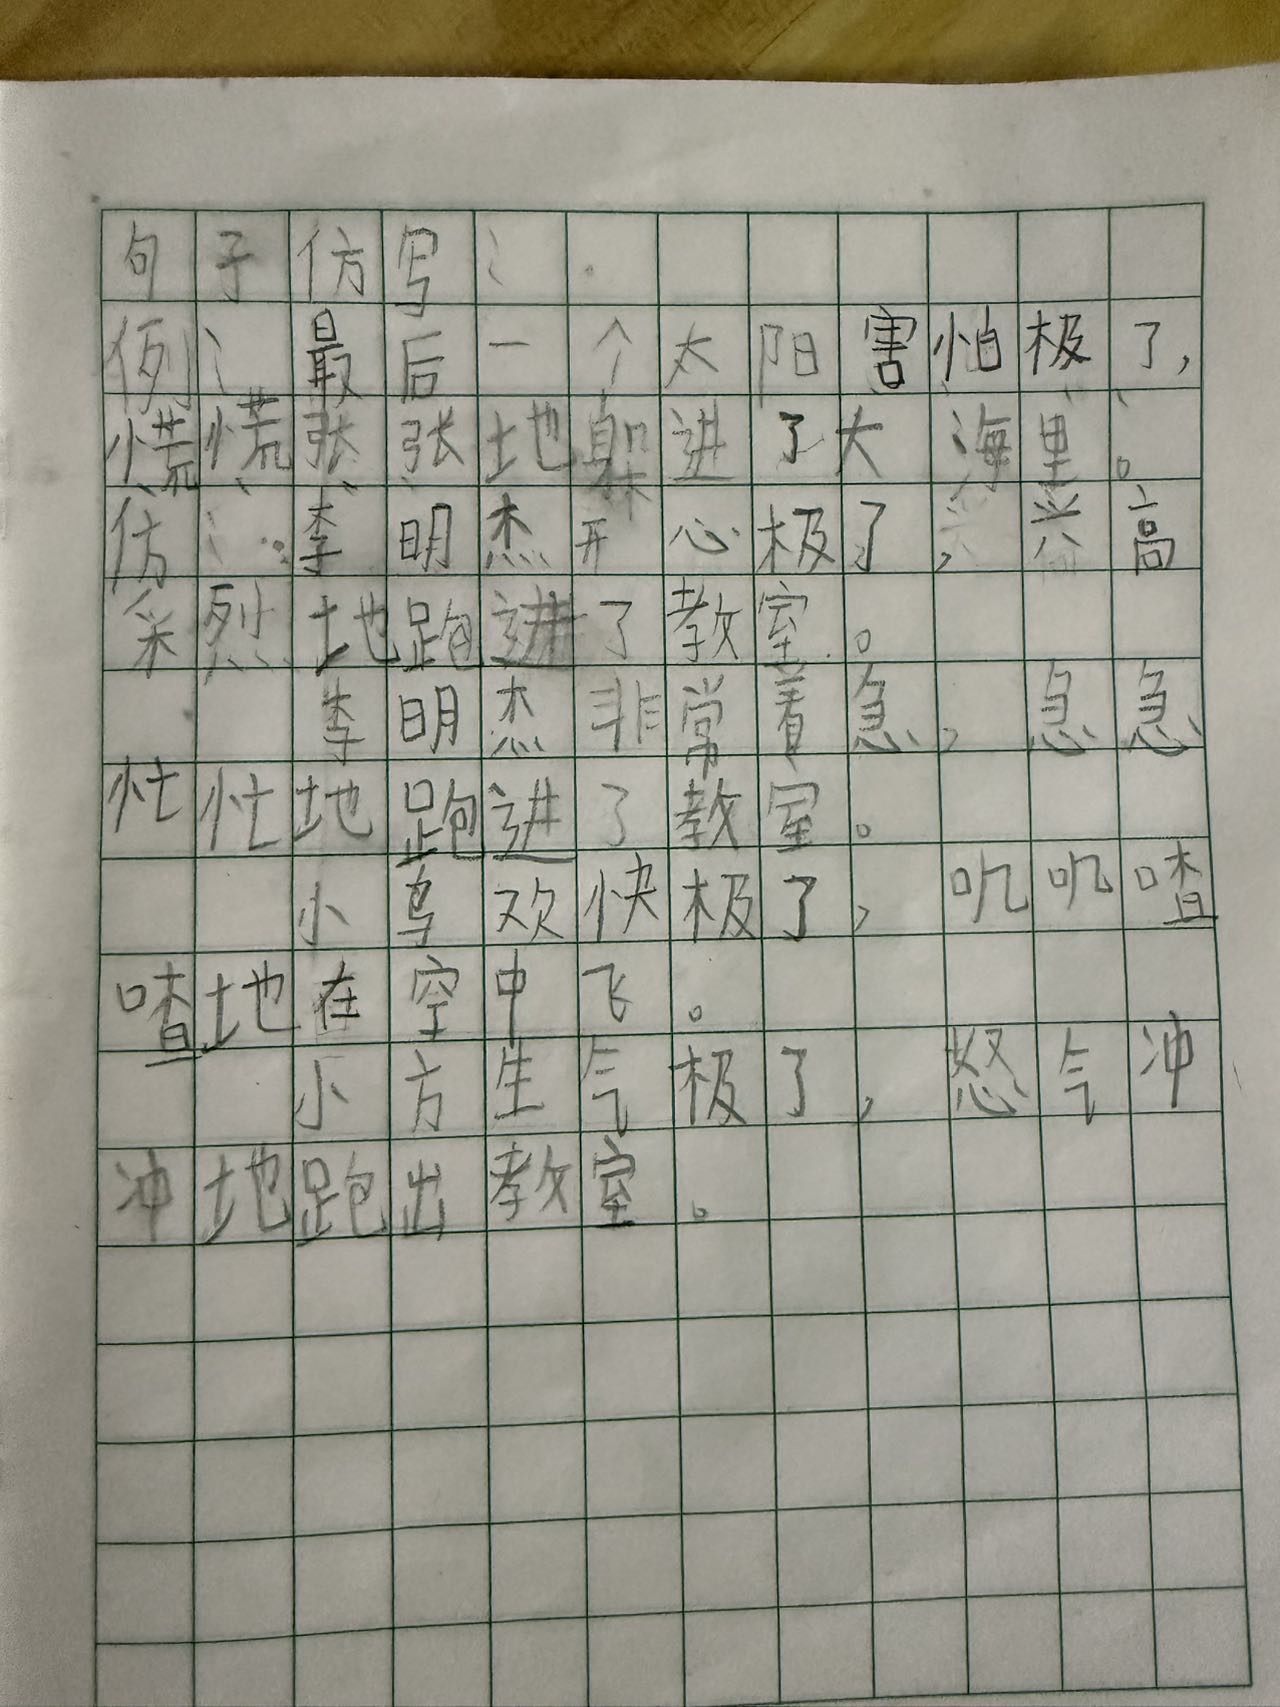 句子仿写：
例：最后一个太阳害怕极了，
慌慌张张地躲进了大海里。
仿：李明杰开心极了，兴高
采烈地跑进了教室。
李明杰非常着急，急急
忙忙地跑进了教室。
小鸟欢快极了，叽叽喳
喳地在空中飞。
小方生气极了，怒气冲
冲地跑出教室。